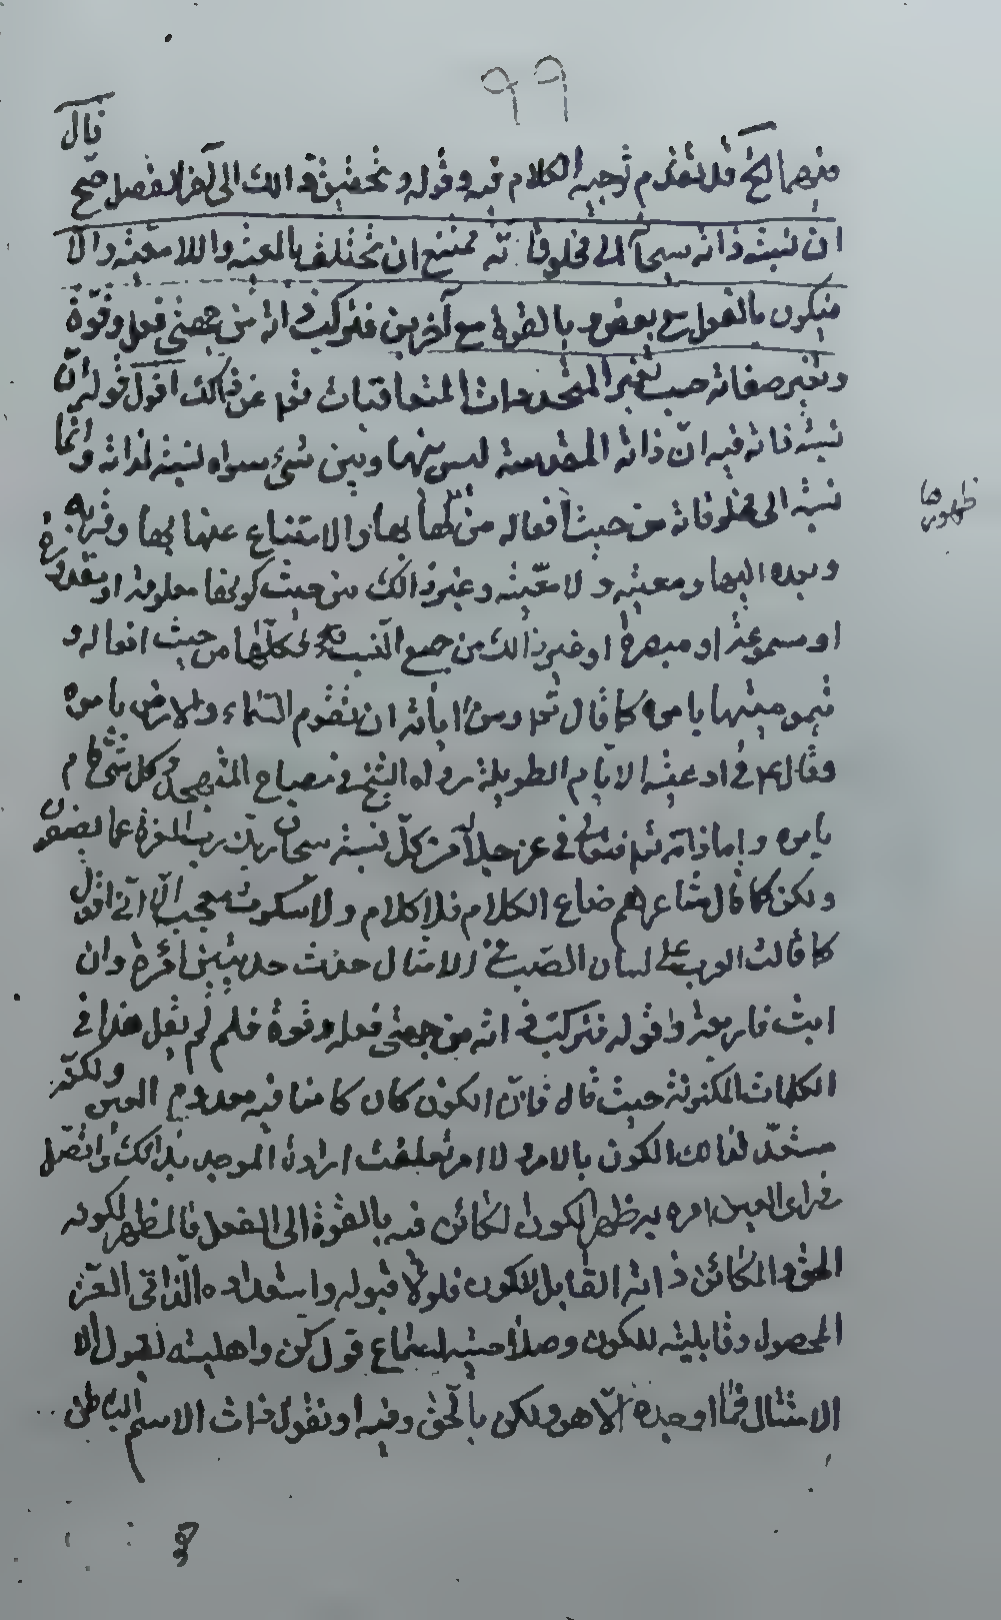 ٩٩
قال
منهما الخ فلا تقدم توجيه الكلام فيه وقوله وتحقيق ذالك الى آخر الفصل صحيح
ان نسبة ذاته سبحانه الى مخلوقاته يمتنع ان تختلف بالمعية واللامعية والا
فيكون بالفعل مع بعض و بالقوة مع آخرين فتتركب ذاته من جهتي فعل وقوة
وتغير صفاته حسب تغير المتجددات المتعاقبات تعالى عن ذالك اقول قوله ان
نسبة ذاته فيه ان ذاته المقدسة ليس بينها وبين شيء سواه نسبة لذاته وانما
نسبة الى مخلوقاته من حيث افعاله من بها والامتناع عنها بها وقربه
ظهورها
وبعده اليها ومعيته ولا معيته وغير ذالك من حيث كونها معلومة او مقدورة
او مسموعة او مبصرة او غير ذالك من جميع النسب فكلها من حيث افعاله و
قيموميتها بامره كما قال تعالى ومن اياته ان تقوم السماء والارض بامره
وقال في ادعية الايام الطويلة رواه الشيخ في مصباح المتهجد كل شيء قام
بامره واما ذاته في عز جلاله عن كل نسبة سبحان ربك رب العزة عما يصفون
ولكن كما قال شاعرهم ضاع الكلام فلا كلام ولا سكوت معجب الا اني اقول
كما قالت العرب على لسان الضب في الامثال حدث حديثين امرأة وان
ابت فاربعة وقوله فتتركب ذاته من جهتي فعل وقوة فلم لم يقل هذا في
الكلمات المكنونة حيث قال فان الكون كان كامنا فيه معدوم العين ولكنه
مستعد لذالك الكون بالامر لا امر تعلقت ارادة الموجد بذالك واتصل
في راى العين امره به ظهر الكون الكائن فيه بالقوة الى الفعل فالمظهر لكونه
الحق والكائن ذاته القابل للكون فلولا قبوله واستعداده الذاتي الغير
المجعول وقابليته للكون وصلاحيته لسماع قول كن واهليته لقبول
الامتثال فما اوجده الا هو ولكن بالحق وفيه او نقول ذات الاسم الباطن